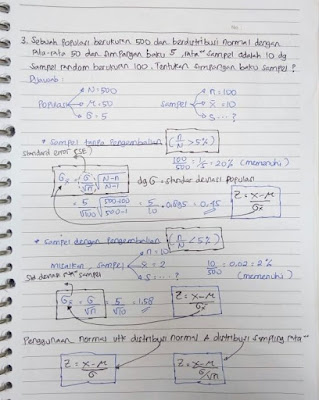 3. Sebuah Populasi berukuran 500 dan berdistribusi normal dengan
rata-rata 50 dan simpangan baku 5, rata" sampel adalah 10 dg
sampel random berukuran 100. Tentukan simpangan baku sampel ?
Dijawab :
Populasi N=500 μ=50 σ=5 Sampel n=100 x̄=10 s...?
* Sampel tanpa Pengembalian (n/N > 5%)
standard error (SE)
100/500 = 1/5 = 20% (memenuhi)
σx̄ = σ/√n √(N-n/N-1) dg σ = standar deviasi populasi
= 5/√100 √(500-100/500-1) = 5/10 · 0.895 = 0.45
Z = x-μ/σx̄
* Sampel dengan Pengembalian (n/N < 5%)
misalkan, sampel n=10 x̄=2 s...?
10/500 = 0.02 = 2% (memenuhi)
sampel
σx̄ = σ/√n = 5/√10 = 1.58
Z = x-μ/σx̄
Penggunaan normal utk distribusi normal & distribusi sampling rata"
Z = x-μ/σ
Z = x-μ/σ/√n